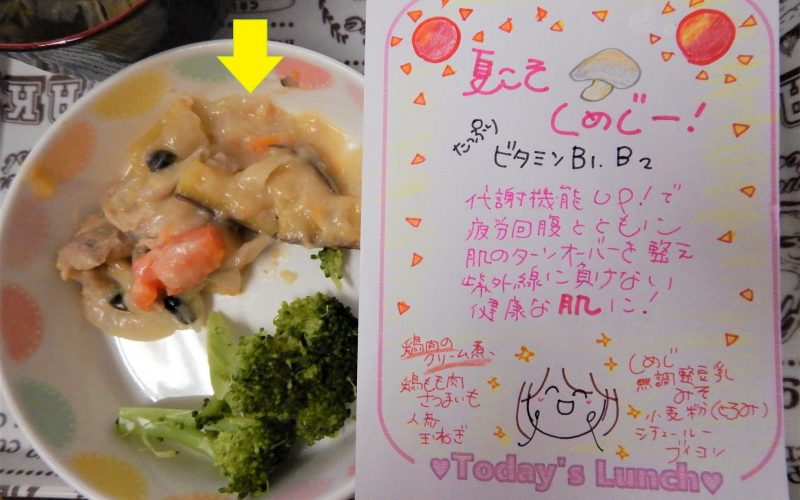 夏こそ
しめじー!
たっぷり
ビタミンB1. B2
代謝機能UP!で
疲労回腹とともに
肌のターンオーバーを整え
紫外線に負けない
健康な肌に!
鶏肉の
クリーム煮
鶏もも肉
さつまいも
人参
玉ねぎ
しめじ
無調整豆乳
みそ
小麦粉(とろみ)
シチュールー
ブイヨン
Today's Lunch